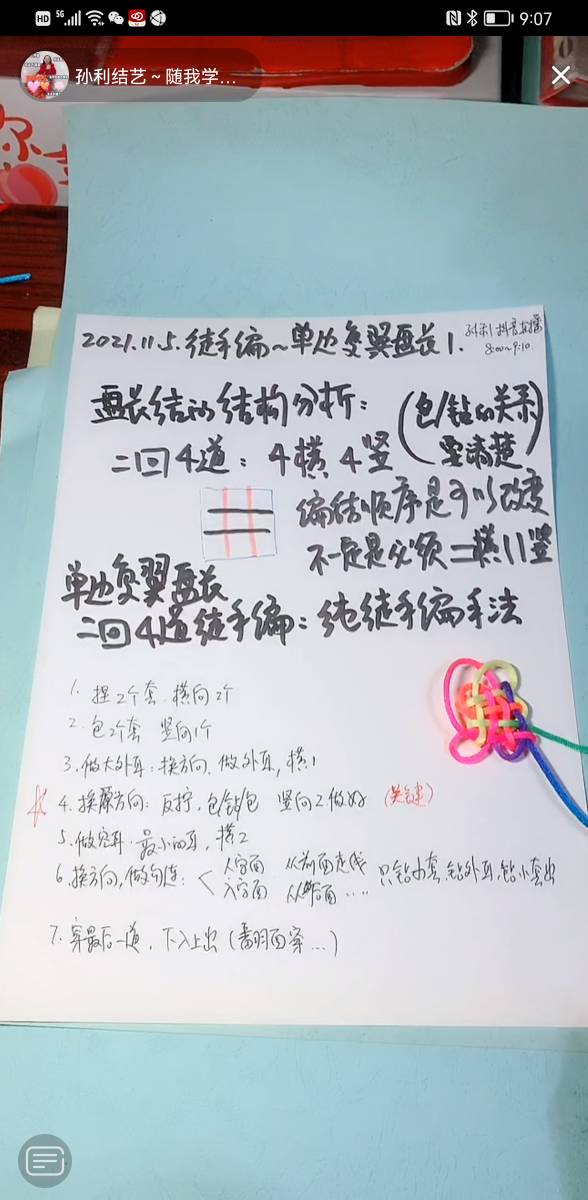 HD 5G 9:07
孙利结艺~随我学...
2021.11.5.徒手编~单边复翼盘长1.
孙利抖音直播
8:00~9:10.
盘长结的结构分析:
(包/钻的关系
要清楚)
二回4道: 4横4竖
编结顺序是可以改变
不一定是必须二横11竖
单边复翼盘长
二回4道徒手编: 纯徒手编手法
1. 捏2个套.横向2个
2. 包2个套 竖向1个
3. 做大外耳: 换方向、做外耳,横1
4. 换原方向: 反拧,包/钻/包 竖向2做好 (关键)
5. 做完耳.最小的耳,横2
6. 换方向,做勾连: < 人字面 从前面走线
入字面 从后面.....
只钻小套、钻外耳、钻小套出
7. 穿最后一道、下入上出(翻面穿...)